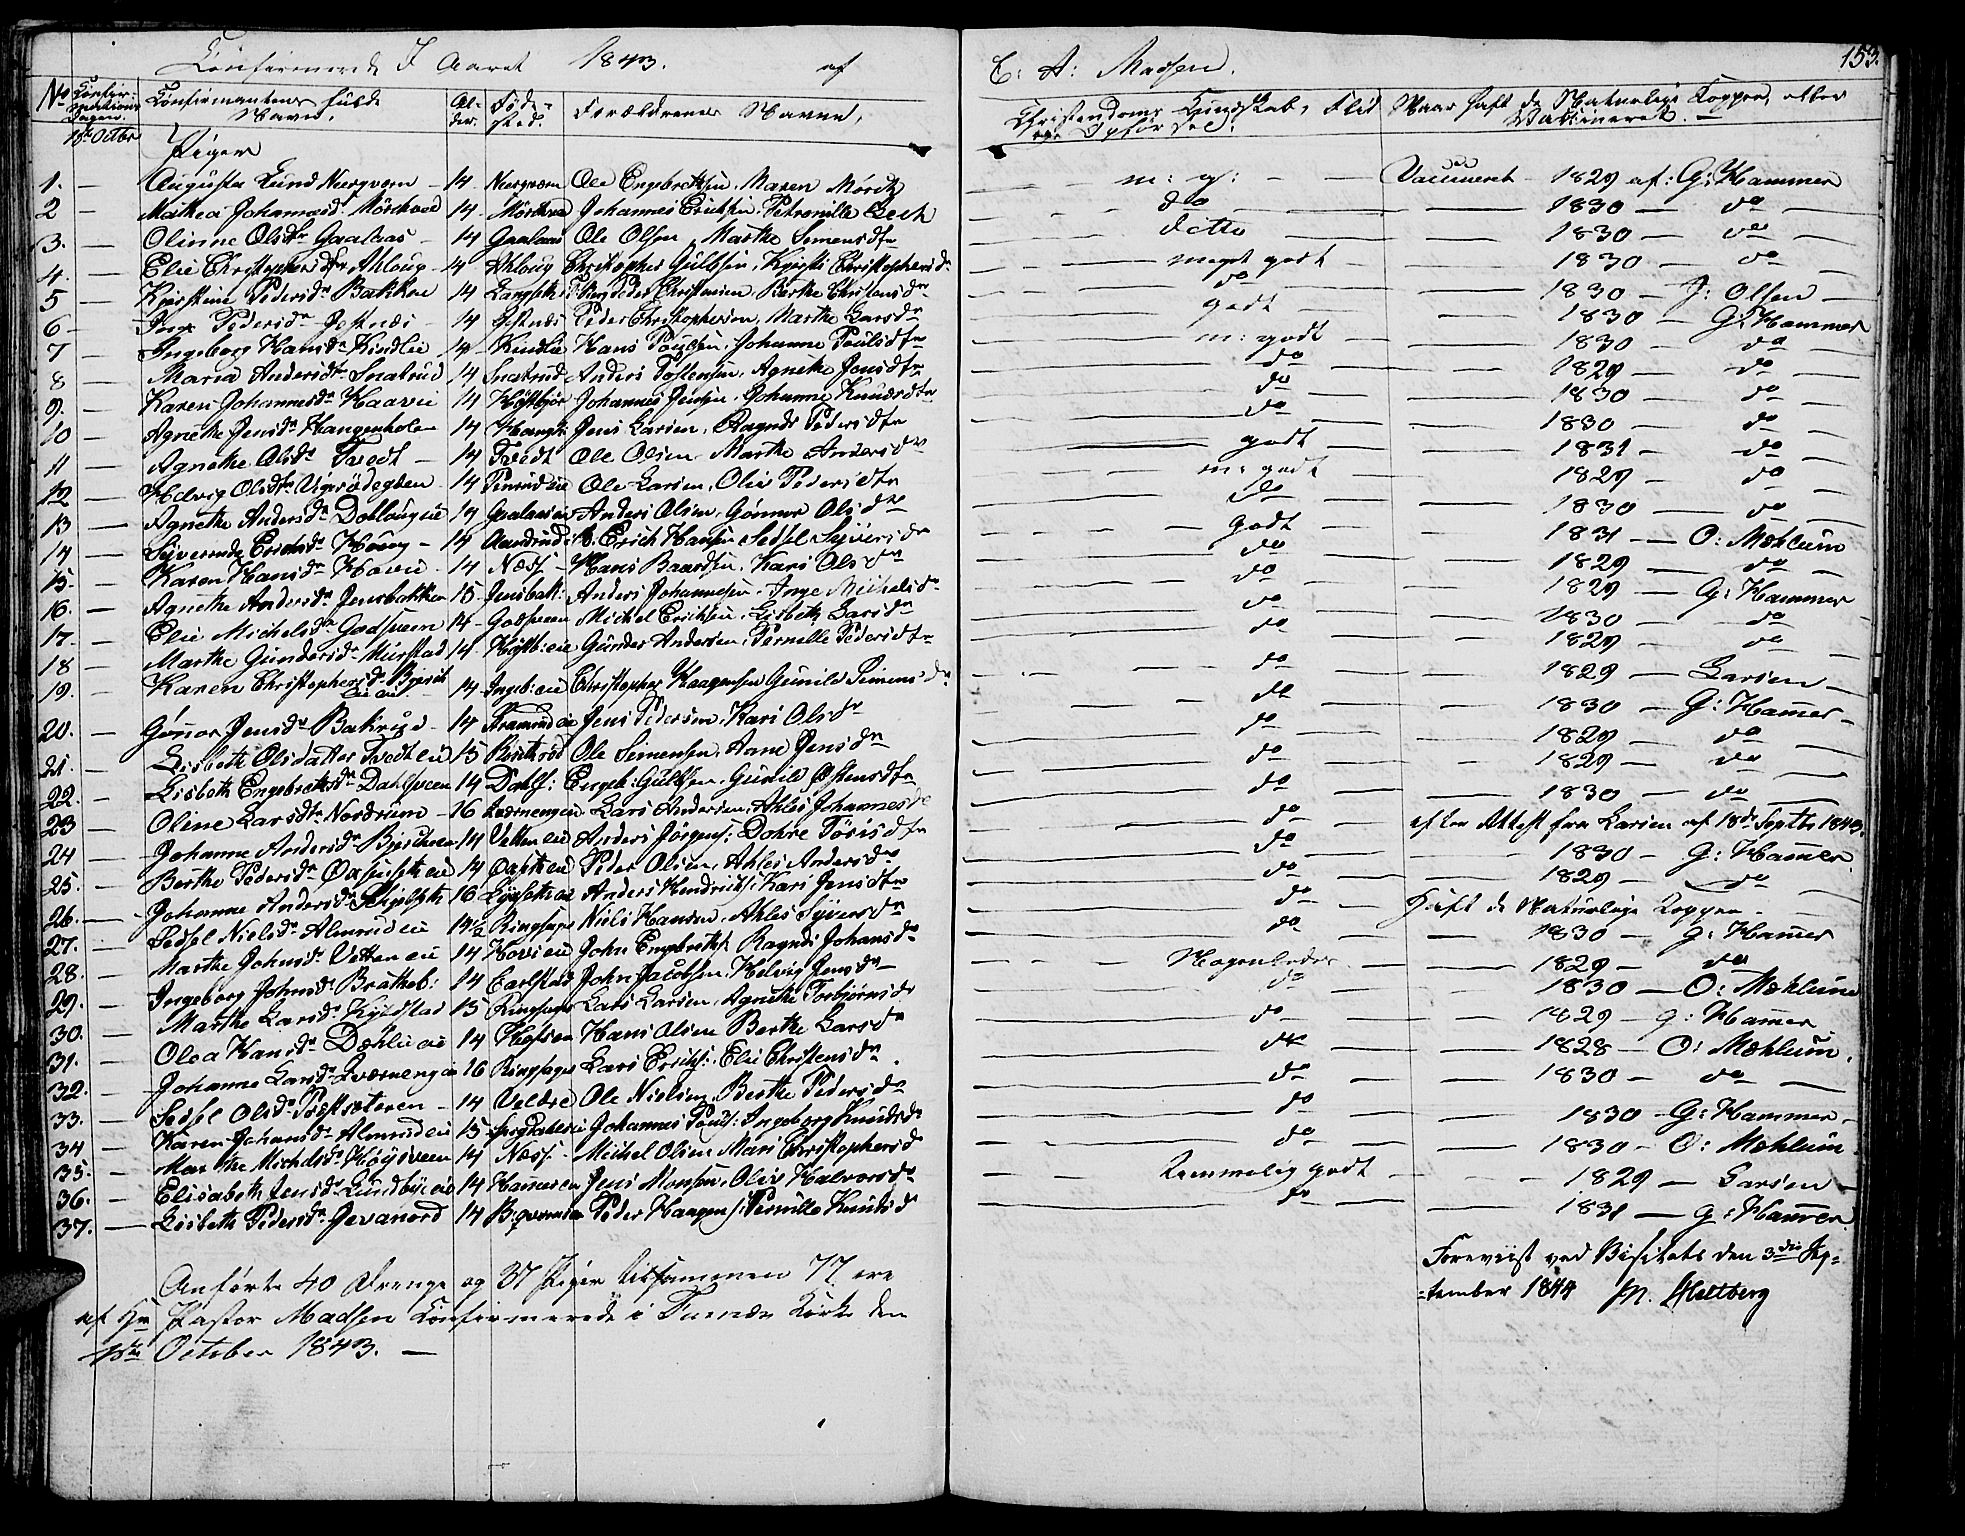 Confirmerede I Aaret 1843. af C: A: Madsen. 153.
No Confirmations Dagen. Confirmantens fulde Navn. Alder. Fødested. Forældrenes Navne. Christendoms Kundskab, Flid og Opførsel. Naar haft de Naturlige Kopper, eller Vaccineret.
15de Octbr Piger
1. — Augusta Lund Nergvern — 14 Nergvern Ole Engebretsen, Maren Mörch m: g: Vaccineret 1829 af: G: Hammer
2 — Mathea Johannesdr 14 Johannes Erichsen, Petronille Lech do 1830 — do
3. — Olinne Olsdtr Gaalaas 14 Gaalaas Ole Olsen, Marthe Simensdtr ditto 1830 — do
4. — Elie Christophersdtr Ahloug 14 Ahloug Christopher Gulbsen, Kjersti Christophersdr meget godt 1830 — do
5 — Kjerstine Pedersdr Bakken 14 Peder Christensen, Berthe Christensdr do 1830 — J: Olsen
6 — Inge Pedersdr Jestnæs 14 Jestnæs Peder Christophersen, Marthe Larsdr godt 1830 — G: Hammer
7 — Ingeborg Hansdr Kindlie 14 Kindlie Hans Poulsen, Johanne Poulsdtr m: godt 1830 — do
8 — Maria Andersdr Snatrud 14 Snatrud Anders Tostensen, Agnethe Jensdtr do 1829 — do
9. — Karen Johannesdr Haavie 14 Johannes Jensen, Johanne Knudsdtr do 1830 — do
10 — Agnethe Jensdr Hangenholen 14 Jens Larsen, Ragnde Pedersdtr do 1830 do
11 — Agnethe Olsdr Tvedt — 14 Tvedt Ole Olsen Marthe Andersdr godt 1831 — do
12 — Helvig Olsdtr 14 Ole Larsen, Olive Pedersdtr m: godt 1829 do
13 — Agnethe Andersdr Dobloug eie 14 Gaalaas eie Anders Olsen, Gønner Olsdtr do 1830 do
14 — Syverende Erichsdr Houg — 14 Erich Hansen Sedsel Syversdr Godt 1831 — O: Mæhlum
15. — Karen Hansdr 14 Næss. — Hans Baardsen, Kari Olsdr do 1829 — do
16. — Agnethe Andersdr Jensbakken 15 Jensbak: Anders Johannesen, Inge Michelsdr do 1829 — G: Hammer
17. — Elie Michelsdr Godsveen 14 Godsveen Michel Erichsen, Lisbeth Larsdr do 1830 do
18 — Marthe Gundersdr Mürstad 14 Gunder Andersen, Pernille Pedersdtr do 1829 do
19. — Karen Christophersdr 14 Ingeb: eie Christopher Haagensen Gunild Simensdr do 1829 — Larsen
20. — Gønnor Jensdr Bakrud 14 Jens Pedersen, Kari Olsdr do 1830 — G: Hammer
21. — Lisbeth Olsdatter Tvedt eie 15 Ole Simensen, Anne Jensdr do 1829 — do
22. — Lisbeth Engebrethsdr Dahlsveen 14 Dahls: Engeb: Gulbsen, Gunild Østensdtr do 1829 — do
23 — Oline Larsdtr Nordrum — 16 Lars Andersen, Ahles Johannesdr do 1830 — do
24 — Johanne Andersdr 14 Vetten eie Anders Jørgens: Dohre Törisdtr do efter Attest fra Larsen af 18de Septbr 1843.
25. — Berthe Pedersdr 14 Peder Olsen, Ahles Andersdr do 1830 — G: Hammer
26. — Johanne Andersdr 16 Anders Hendrichs: Kari Jensdtr do 1829 do
27. — Sedsel Nielsdr Almrud eie 14½ Ringsager Niels Hansen, Ahles Syversdr do Haft de Naturlige Kopper
28. — Marthe Johnsdr Vetten eie 14 John Engebrets: Ragnde Johansdr do 1830 — G: Hammer
29. — Ingeborg Johnsdr Bratheb: 14 Carlstad John Jacobsen, Helvig Jensdr Nogenledes 1829 — do
30. — Marthe Larsdr 15 Ringsager Lars Larsen, Agnethe Torbjørnsdr do 1830 — O: Mæhlum
31. — Olea Hansdr Dæhlie eie 14 Hans Olsen Berthe Larsdr do 1829 — G: Hammer
32. — Johanne Larsdr Qværneng eie 16 Ringsager Lars Erichs: Elie Christensdr do 1828 — O: Mæhlum.
33. — Sedsel Olsdr Præstsæteren — 14 Veldre Ole Nielsen, Berthe Pedersdr do 1830 — do
34 — Karen Johansdr Almrud eie 15 Johannes Pouls: Ingeborg Knudsdr do 1830 — G: Hammer
35. — Marthe Michelsdr Höysveen 14 Næss. Michel Olsen Mari Christophersdr do 1830 — O: Mæhlum
36. — Elisabeth Jensdr Lundbye eie 14 Jens Monsen, Olive Halvorsdr Temmelig godt 1829 — Larsen
37. — Lisbeth Pedersdr Jevanord 14 Peder Haagens: Pernille Knudsdr do 1831 — G: Hammer
Anførte 40 Drenge og 37 Piger tilsammen 77 ere
af Hr Pastor Madsen Confirmerede i Furnæs Kirke den
15de October 1843. —
Foreviist ved Visitats den 3die Sep-
tember 1844 M. Heltberg